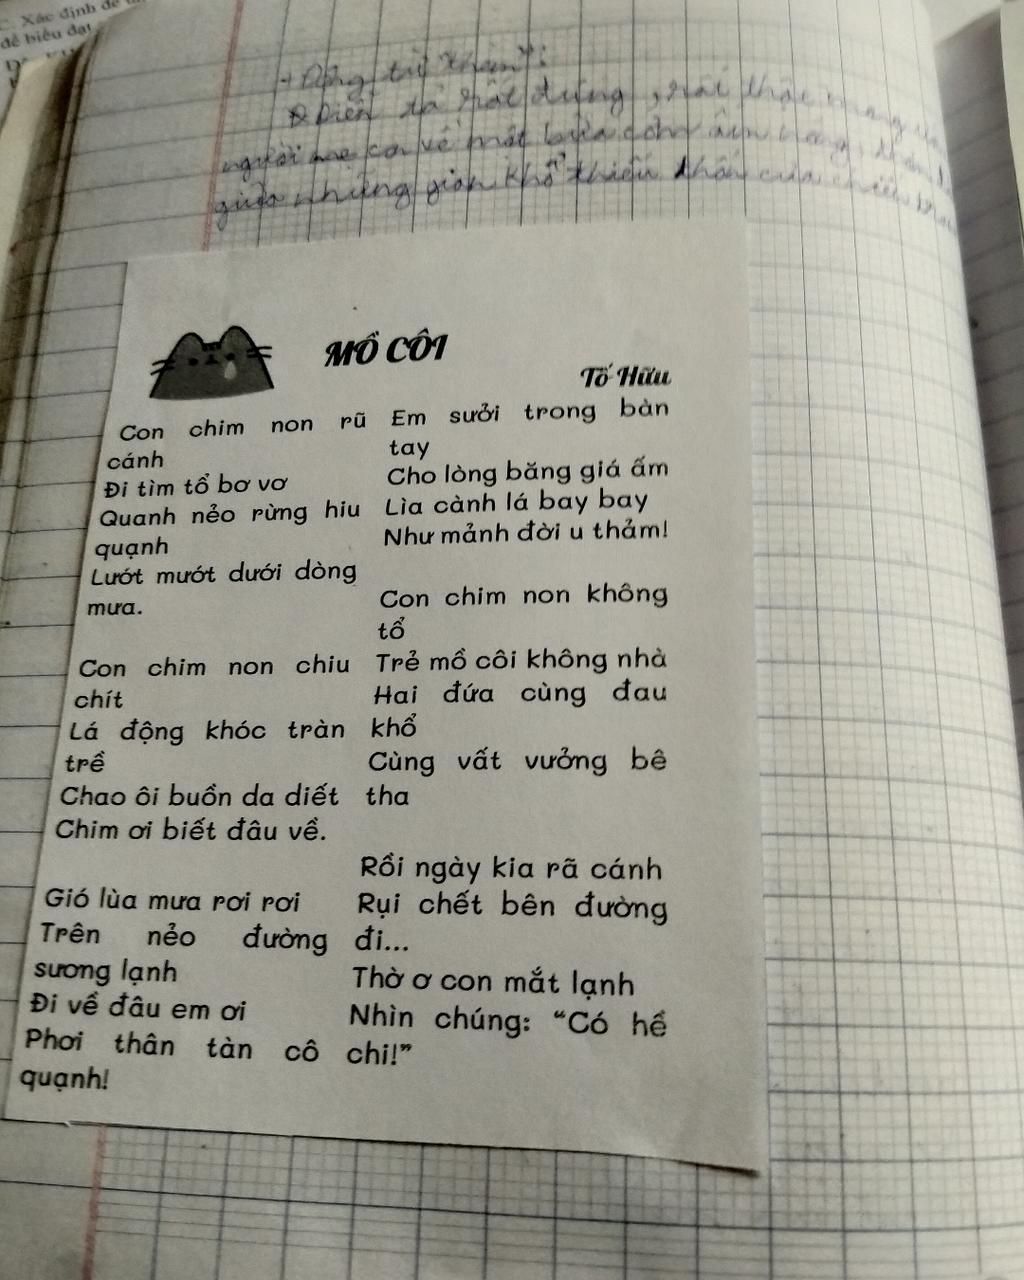 C. Xác định đề
để biểu đạt
+ Động từ "thơm":
Diễn tả rất đúng, rất thật
người mẹ về một bữa cơm ấm nóng,
giữa những gian khổ thiếu thốn của chiến
MỒ CÔI
Tố Hữu
Con chim non rũ
cánh
Đi tìm tổ bơ vơ
Quanh nẻo rừng hiu
quạnh
Lướt mướt dưới dòng
mưa.
Con chim non chiu
chít
Lá động khóc tràn
trề
Chao ôi buồn da diết
Chim ơi biết đâu về.
Gió lùa mưa rơi rơi
Trên nẻo đường
sương lạnh
Đi về đâu em ơi
Phơi thân tàn cô
quạnh!
Em sưởi trong bàn
tay
Cho lòng băng giá ấm
Lìa cành lá bay bay
Như mảnh đời u thảm!
Con chim non không
tổ
Trẻ mồ côi không nhà
Hai đứa cùng đau
khổ
Cùng vất vưởng bê
tha
Rồi ngày kia rã cánh
Rụi chết bên đường
đi...
Thờ ơ con mắt lạnh
Nhìn chúng: “Có hề
chi!”